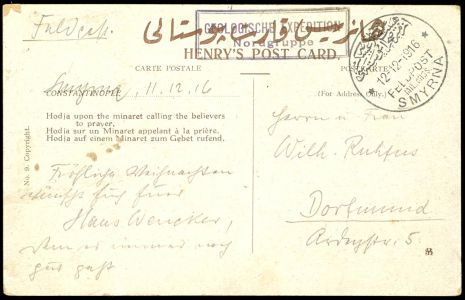 Feldpost.
GEOLOGISCHE EXPEDITION
Nordgruppe
HENRY'S POST CARD.
CARTE POSTALE
POSTKARTE
12-12-1916
FELDPOST
MIL. MISS.
SMYRNA
CONSTANTINOPLE
Smyrna, 11.12.16
(For Address Only.)
Hodja upon the minaret calling the believers
to prayer.
Hodja sur un Minaret appelant à la prière.
Hodja auf einem Minaret zum Gebet rufend.
No. 9. Copyright.
Fröhliche Weihnachten
wünscht Euch Euer
Hans Wencker,
dem es immer noch
gut geht
Herrn u. Frau
Wilh. Ruhfus
Dortmund
Ardeystr. 5.